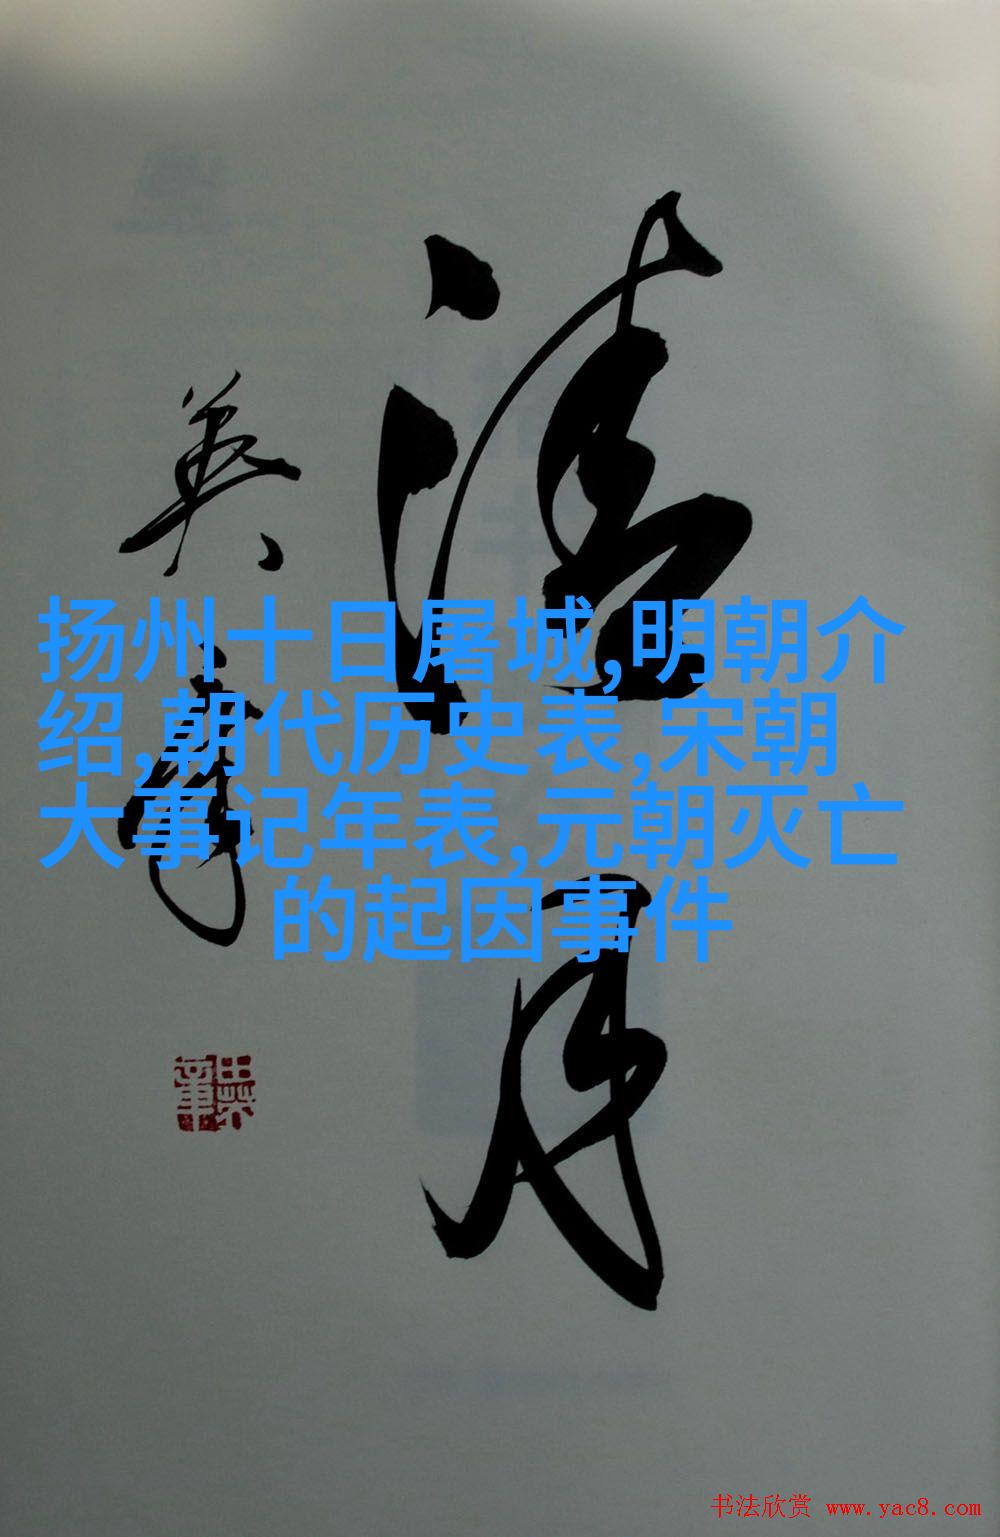 扬州十日屠城,明朝介
绍,朝代历史表,宋朝
大事记年表,元朝灭亡
的起因事件
清月
书法欣赏 www.yac8.com